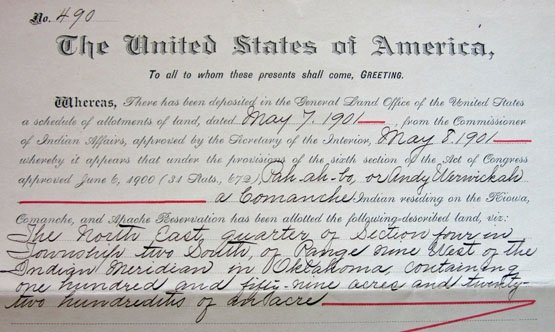 No. 490
The United States of America,
To all to whom these presents shall come, GREETING.
Whereas, There has been deposited in the General Land Office of the United States
a schedule of allotments of land, dated May 7, 1901, from the Commissioner
of Indian Affairs, approved by the Secretary of the Interior, May 8, 1901
whereby it appears that under the provisions of the sixth section of the Act of Congress
approved June 6, 1900 (31 Stats., 672), Pah-ah-bo, or Andy Werwickah
a Comanche Indian residing on the Kiowa,
Comanche, and Apache Reservation has been allotted the following-described land, viz:
The North East quarter of Section four in
Township two South, of Range nine West of the
Indian Meridian in Oklahoma, containing
one hundred and fifty-nine acres and twenty-
two hundredths of an acre